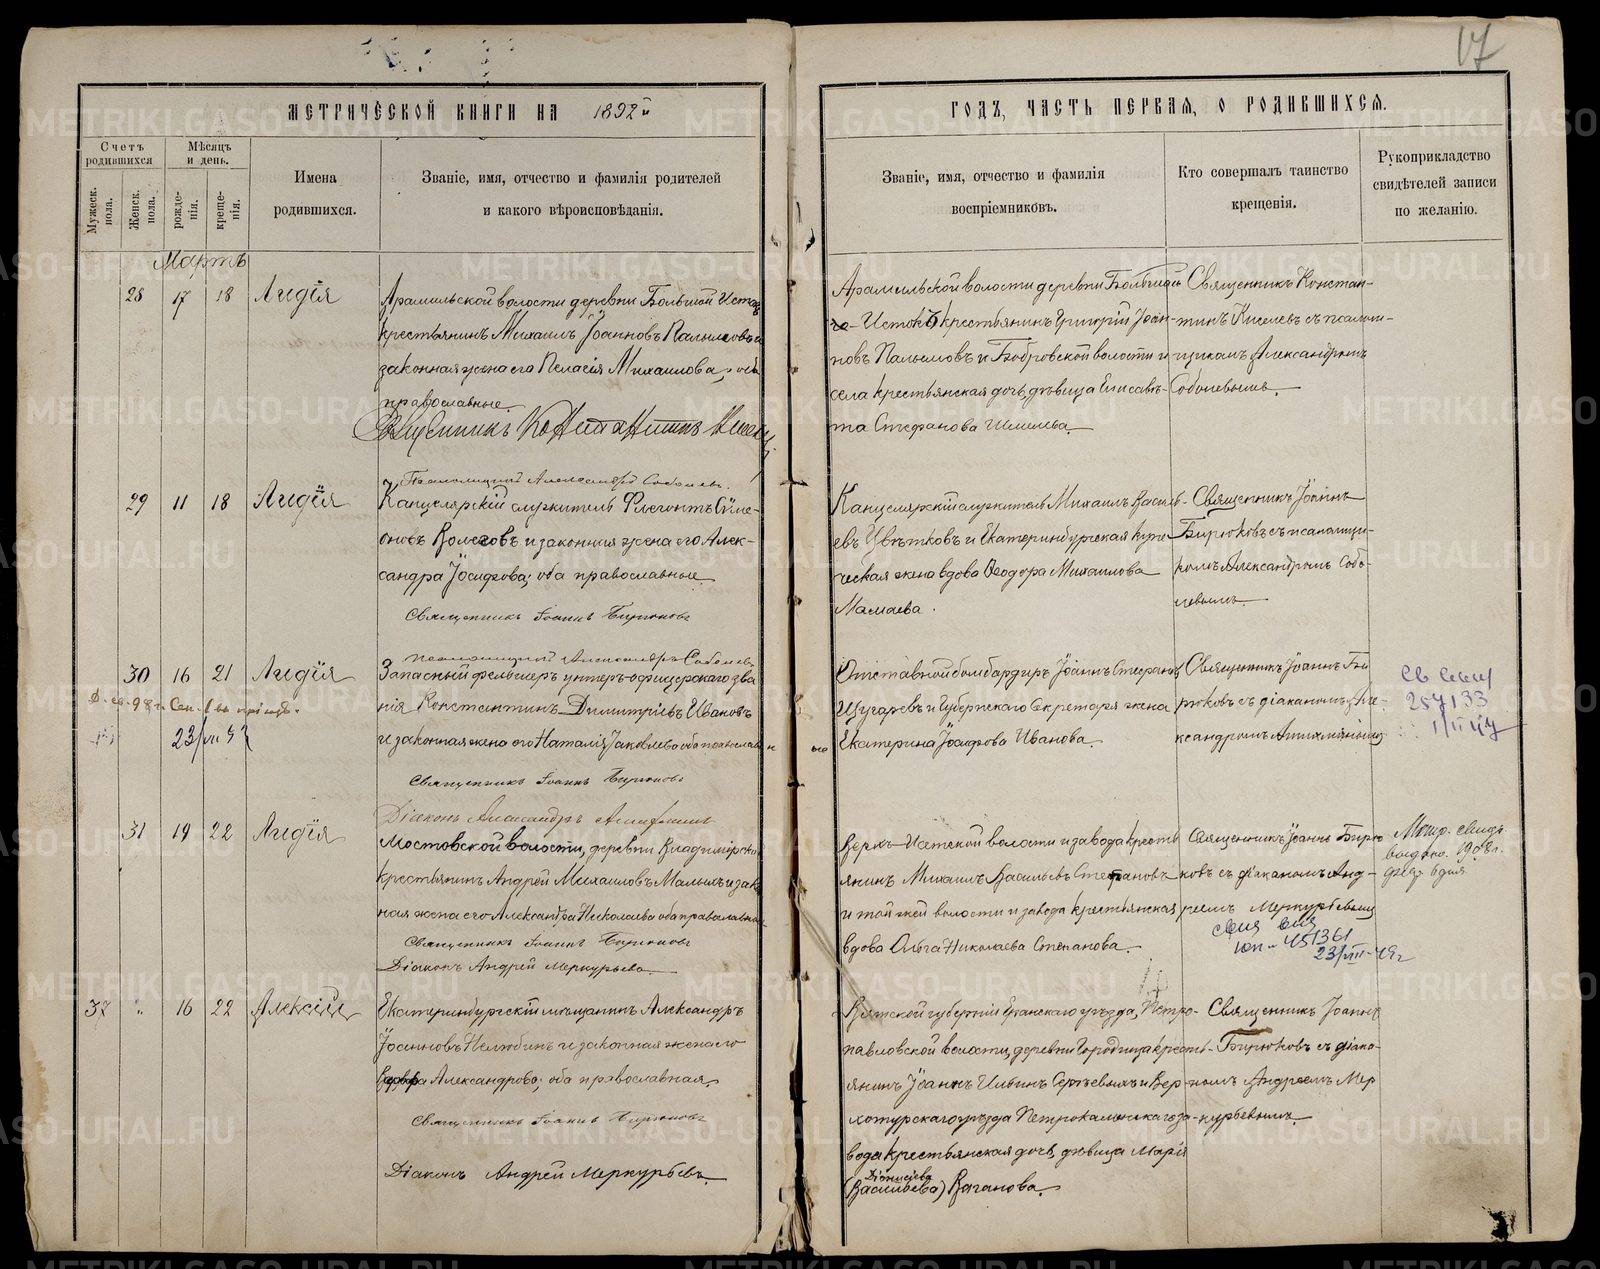 17
МЕТРИЧЕСКОЙ КНИГИ НА 1892й
ГОДЪ, ЧАСТЬ ПЕРВАЯ, О РОДИВШИХСЯ.
Счетъ родившихся
Мужеск. пола.
Женск. пола.
Мѣсяцъ и день.
рожде-нія.
креще-нія.
Имена родившихся.
Званіе, имя, отчество и фамилія родителей
и какого вѣроисповѣданія.
Званіе, имя, отчество и фамилія
воспріемниковъ.
Кто совершалъ таинство
крещенія.
Рукоприкладство
свидѣтелей записи
по желанію.
Мартъ
28 17 18 Лидія
Арамильской волости деревни Большой Истокъ
крестьянинъ Михаилъ Іоанновъ
законная жена его Пелагія Михаилова, оба
православные.
Священникъ Константинъ
Арамильской волости деревни
Истокъ крестьянинъ Григорій Іоан-
новъ и Бобровской волости и
села крестьянская дочь, дѣвица Елисаве-
та Стефанова
Священникъ Констан-
тинъ Киселевъ съ псалом-
щикомъ Александромъ
Соболевымъ.
Псаломщикъ Александръ Соболевъ.
29 11 18 Лидія
Канцелярскій служитель Флегонтъ Симе-
оновъ и законная жена его Алек-
сандра Іосифова; оба православные.
Священникъ Іоаннъ Бирюковъ
Псаломщикъ Александръ Соболевъ
Канцелярскій служитель Михаилъ Василь-
евъ Цвѣтковъ и Екатеринбургская купе-
ческая жена вдова Ѳеодора Михаилова
Мамаева.
Священникъ Іоаннъ
Бирюковъ съ псаломщи-
комъ Александромъ Собо-
левымъ.
30 16 21 Лидія
Запасный фельдшеръ унтеръ-офицерскаго зва
нія Константинъ Димитріевъ Ивановъ
и законная жена его Наталія Іаковлева оба православн
ые
Священникъ Іоаннъ Бирюковъ
Діаконъ Александръ
Отставной бомбардиръ Іоаннъ Стефановъ
и Губернскаго Секретаря жена
Екатерина Іосифова Иванова.
Священникъ Іоаннъ Би
рюковъ съ діакономъ Але-
ксандромъ
257133
31 19 22 Лидія
Мостовской волости, деревни
крестьянинъ Андрей Михаиловъ Малыхъ и закон
ная жена его Александра Николаева оба православны
Священникъ Іоаннъ Бирюковъ
Діаконъ Андрей Меркурьевъ.
Верхъ-Исетской волости и завода кресть
янинъ Михаилъ Васильевъ Степановъ
и той жей волости и завода крестьянская
вдова Ольга Николаева Степанова.
Священникъ Іоаннъ Бирю
ковъ съ діакономъ Анд-
реемъ Меркурьевымъ
451361
23/VIII-49г
Метр. свид.
выдано. 1908г.
37 " 16 22 Алексій
Екатеринбургскій мѣщанинъ Александръ
Іоанновъ Нелюбинъ и законная жена его
Александрова; оба православная.
Священникъ Іоаннъ Бирюковъ
Діаконъ Андрей Меркурьевъ.
Вятской губерніи Яранскаго уѣзда, Петро-
павловской волости, деревни Городища кресть-
янинъ Іоаннъ Ильинъ Сергѣевыхъ и Вер-
хотурскаго уѣзда Петрокаменскаго за-
вода крестьянская дочь, дѣвица Марія
Діонисіева
(Васильева) Ваганова.
Священникъ Іоаннъ
Бирюковъ съ діако-
номъ Андреемъ Мер
курьевымъ.